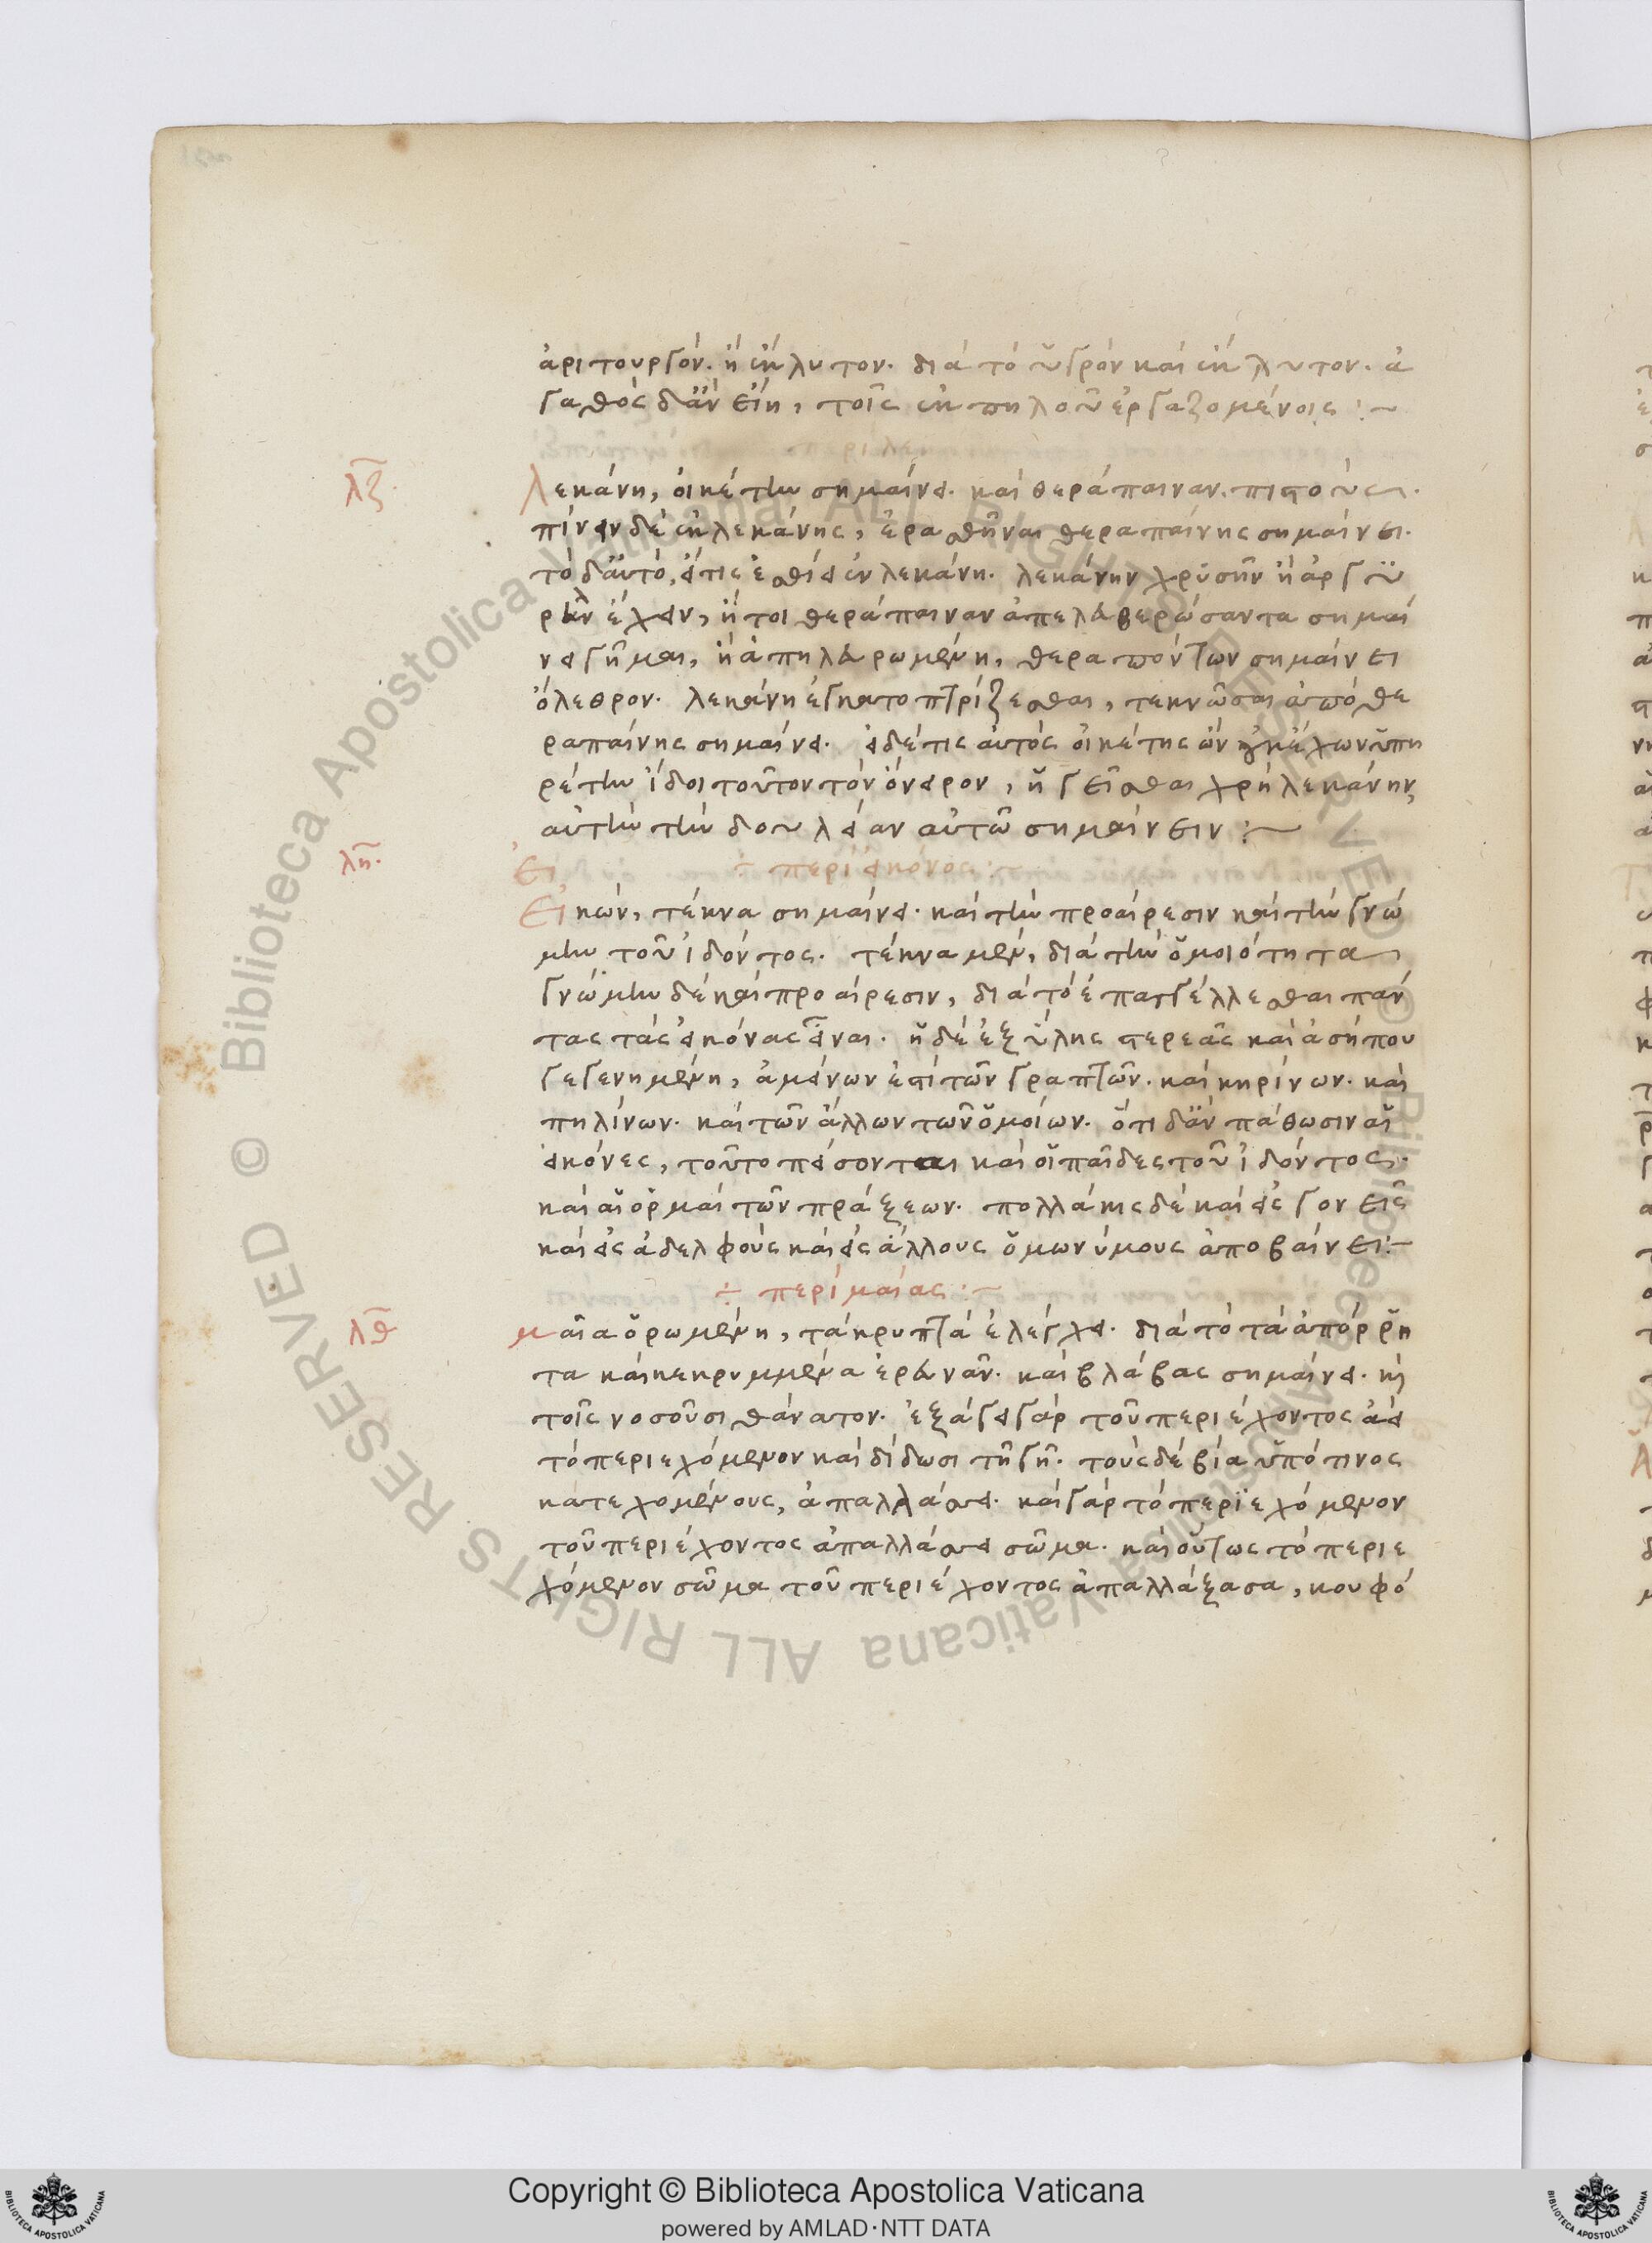 ἀριτουργόν. ἢ ἔκλυτον. διὰ τὸ ὑγρὸν καὶ ἔκλυτον. ἀ
γαθὸς δ' ἂν εἴη, τοῖς ἐκ πηλοῦ ἐργαζομένοις :~
λζ.
Λεκάνη, οἰκέτην σημαίνει. καὶ θεράπαιναν. πιστούς.
πίνειν δὲ ἐκ λεκάνης, ἐρασθῆναι θεραπαίνης σημαίνει.
τὸ δ' αὐτὸ, εἴ τις ἐσθίει ἐν λεκάνη. λεκάνην χρυσῆν ἢ ἀργυ
ρᾶν ἔχειν, ἤτοι θεράπαιναν ἀπελευθερώσαντα σημαί
νει γῆμαι, ἢ
ὄλεθρον. λεκάνη ἐγκατοπτρίζεσθαι, τεκνῶσαι ἀπὸ θε
ραπαίνης σημαίνει. εἰ δέ τις αὐτὸς οἰκέτης ὢν ἔχων ὑπη
ρέτην ἴδοι τοῦτον τὸν ὄνειρον, ἡγεῖσθαι χρὴ λεκάνην,
αὐτὴν τὴν δουλείαν αὐτῶ σημαίνειν :~
λη.
Εἰ ÷ περὶ εἰκόνος :
Εἰκὼν, τέκνα σημαίνει. καὶ τὴν προαίρεσιν καὶ τὴν γνώ
μην τοῦ ἰδόντος. τέκνα μὲν, διὰ τὴν ὁμοιότητα
γνώμην δὲ καὶ προαίρεσιν, διὰ τὸ ἐπαγγέλλεσθαι πάν
τας τὰς εἰκόνας εἶναι. ἡ δὲ ἐξ ὕλης στερεᾶς καὶ ἀσήπου
γεγενημένη, ἀμείνων ἐστὶ τῶν γραπτῶν. καὶ κηρίνων. καὶ
πηλίνων. καὶ τῶν ἄλλων τῶν ὁμοίων. ὅτι δ' ἂν πάθωσιν αἱ
εἰκόνες, τοῦτο πείσονται καὶ οἱ παῖδες τοῦ ἰδόντος.
καὶ αἱ ὁρμαὶ τῶν πράξεων. πολλάκις δὲ καὶ εἰς γονεῖς
καὶ εἰς ἀδελφοὺς καὶ εἰς ἄλλους ὁμωνύμους ἀποβαίνει :~
÷ περὶ μαίας :~
λθ
Μαῖα ὁρωμένη, τὰ κρυπτὰ ἐλέγχει. διὰ τὸ τὰ ἀπόρρη
τα καὶ κεκρυμμένα ἐρευνᾶν. καὶ βλάβας σημαίνει. καὶ
τοῖς νοσοῦσι θάνατον. ἐξάγει γὰρ τοῦ περιέχοντος ἀεὶ
τὸ περιεχόμενον καὶ δίδωσι τῆ γῆ. τοὺς δὲ βία ὑπό τινος
κατεχομένους, ἀπαλλάσσει. καὶ γὰρ τὸ περιεχόμενον
τοῦ περιέχοντος ἀπαλλάσσει σῶμα. καὶ οὕτως τὸ περιε
χόμενον σῶμα τοῦ περιέχοντος ἀπαλλάξασα, κουφό
© Biblioteca Apostolica Vaticana ALL RIGHTS RESERVED
Copyright © Biblioteca Apostolica Vaticana
powered by AMLAD·NTT DATA